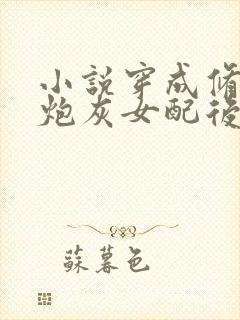 小說穿成脩
炮灰女配後
蘇暮色